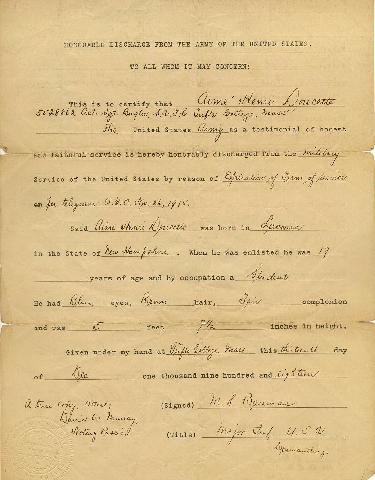 HONORABLE DISCHARGE FROM THE ARMY OF THE UNITED STATES.
TO ALL WHOM IT MAY CONCERN:
This is to certify that Aimé Henri Doucette
5028662 Bugler, S.A.T.C. Tufts College, Mass.
The United States Army as a testimonial of honest
and faithful service is hereby honorably discharged from the military
Service of the United States by reason of Expiration of Term of Service
as per telegram 26, 1918.
Said Aimé Henri Doucette was born in
in the State of New Hampshire. When he was enlisted he was 19
years of age and by occupation a Student
He had eyes, Brown hair, Fair complexion
and was 5 feet inches in height.
Given under my hand at Tufts College Mass this thirteenth day
of Dec one thousand nine hundred and eighteen
A true copy,
Notary Public
(Signed) M. S.
(Title) Major Inf U.S.A.
Commanding.